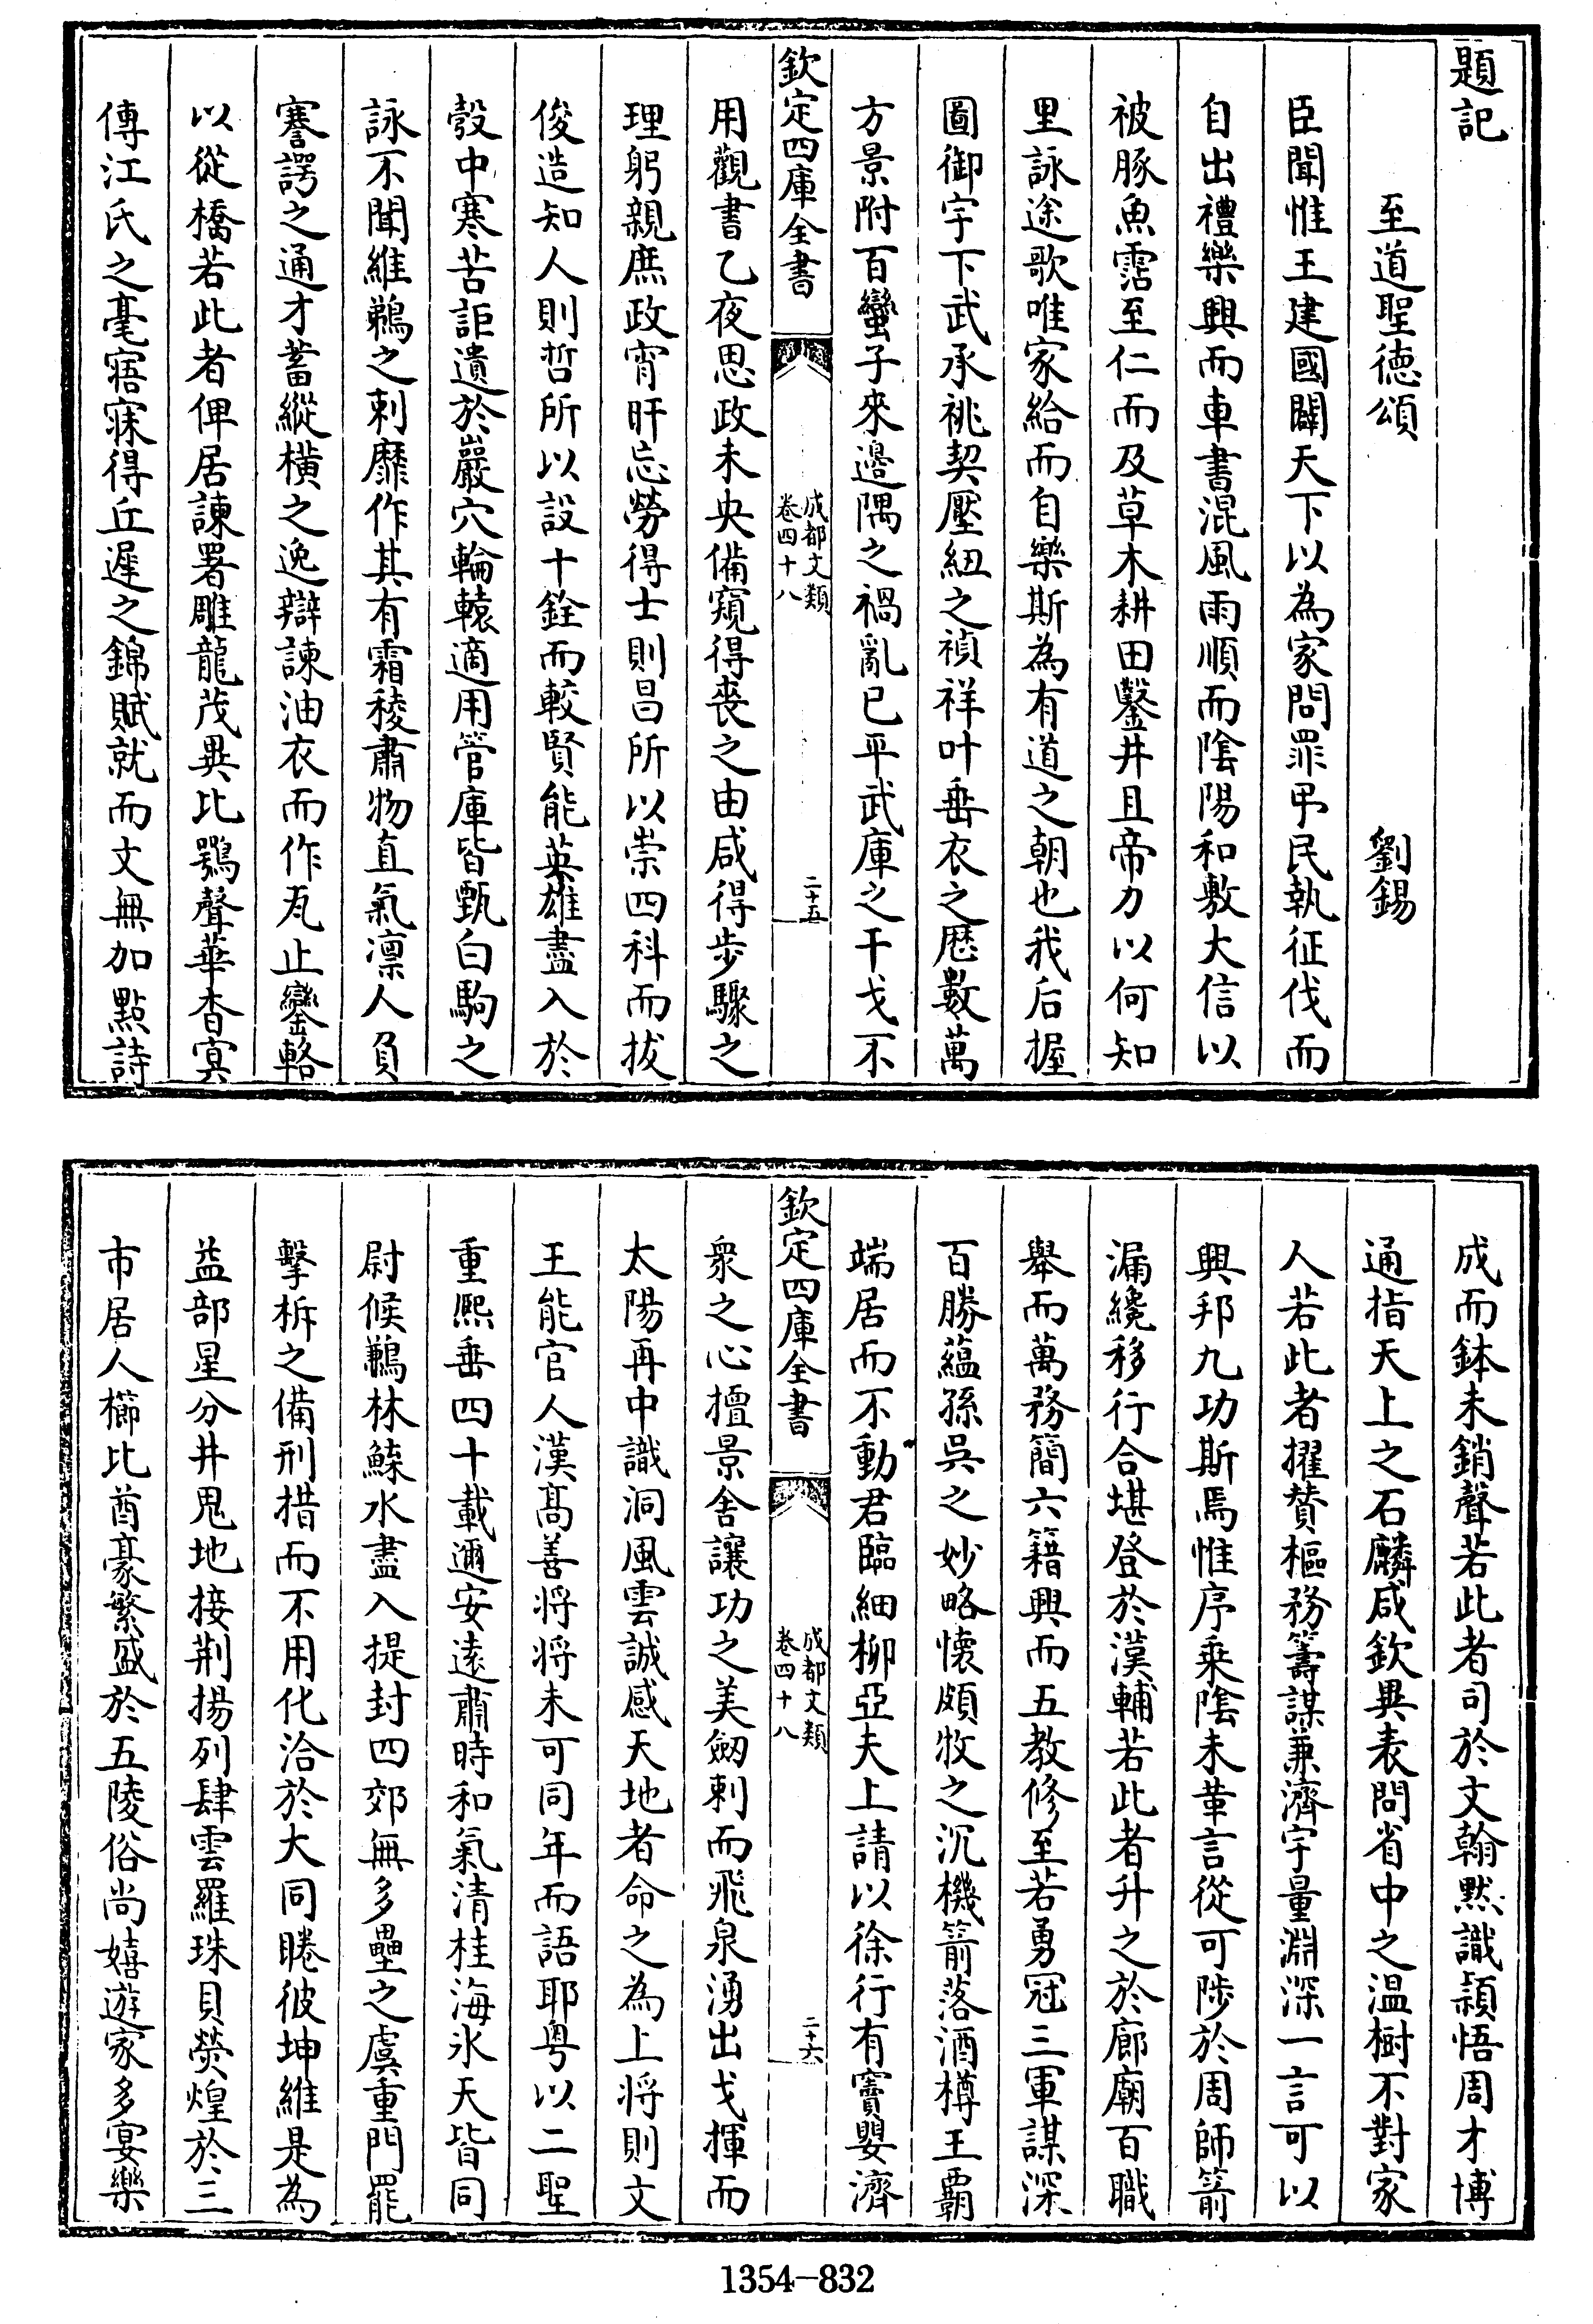 題記
至道聖德頌 劉錫
臣聞惟王建國闢天下以為家問罪弔民執征伐而
自出禮樂興而車書混風雨順而陰陽和敷大信以
被豚魚霑至仁而及草木耕田鑿井且帝力以何知
里詠途歌唯家給而自樂斯為有道之朝也我后握
圖御宇下武承祧契壓紐之禎祥叶垂衣之歷數萬
方景附百蠻子來邊隅之禍亂已平武庫之干戈不
欽定四庫全書 成都文類 卷四十八 二十五
用觀書乙夜思政未央備窺得喪之由咸得步驟之
理躬親庶政宵旰忘勞得士則昌所以崇四科而拔
俊造知人則哲所以設十銓而較賢能英雄盡入於
彀中寒苦詎遺於巖穴輪轅適用管庫皆甄白駒之
詠不聞維鵜之刺靡作其有霜稜肅物直氣凛人負
謇諤之通才蓄縱橫之逸辯諫油衣而作瓦止鑾輅
以從橋若此者俾居諫署雕龍茂異比鶚聲華杳冥
傳江氏之毫寤寐得丘遲之錦賦就而文無加點詩
成而鉢未銷聲若此者司於文翰默識穎悟周才博
通指天上之石麟咸欽異表問省中之温樹不對家
人若此者擢贊樞務籌謀兼濟宇量淵深一言可以
興邦九功斯焉惟序乗陰未荤言從可陟於周師箭
漏纔移行合堪登於漢輔若此者升之於廊廟百職
舉而萬務簡六籍興而五教修至若勇冠三軍謀深
百勝蘊孫吳之妙略懷頗牧之沉機箭落酒樽王霸
端居而不動君臨細柳亞夫上請以徐行有竇嬰濟
欽定四庫全書 成都文類 卷四十八 二十六
衆之心擅景舍讓功之美劒刺而飛泉湧出戈揮而
太陽再中識洞風雲誠感天地者命之為上將則文
王能官人漢髙善將將未可同年而語耶粤以二聖
重熙垂四十載邇安遠肅時和氣清桂海氷天皆同
尉候鶼林鰈水盡入提封四郊無多壘之虞重門罷
擊柝之備刑措而不用化洽於大同睠彼坤維是為
益部星分井鬼地接荆揚列肆雲羅珠貝熒煌於三
市居人櫛比酋豪繁盛於五陵俗尚嬉遊家多宴樂
1354—832